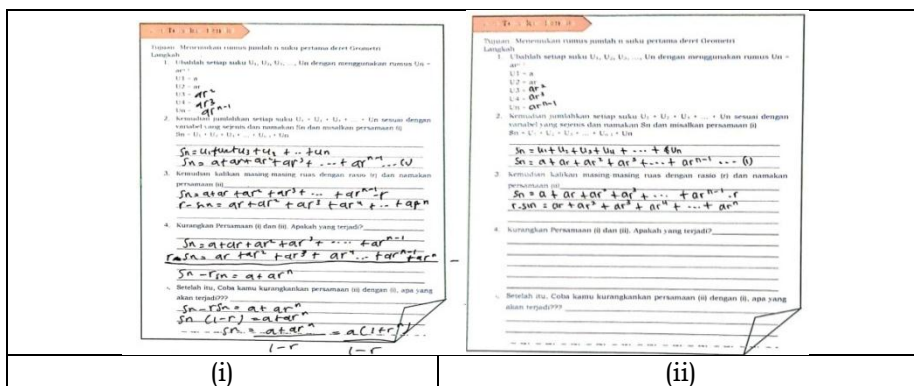 Tujuan: Menentukan rumus jumlah n suku pertama deret Geometri
Langkah
1. Ubahlah setiap suku U₁, U₂, U₃, ..., Un dengan menggunakan rumus Un =
arⁿ⁻¹
U1 = a
U2 = ar
U3 = ar²
U4 = ar³
Un = arⁿ⁻¹
2. Kemudian jumlahkan setiap suku U₁ + U₂ + U₃ + ... + Un sesuai dengan
variabel yang sejenis dan namakan Sn dan misalkan persamaan (i)
Sn = U₁ + U₂ + U₃ + ... + Uₙ₋₁ + Un
Sn = a + ar + ar² + ar³ + ... + arⁿ⁻¹ ... (i)
3. Kemudian kalikan masing-masing ruas dengan rasio (r) dan namakan
persamaan (ii)
Sn = a + ar + ar² + ar³ + ... + arⁿ⁻¹ . r
r.Sn = ar + ar² + ar³ + ar⁴ + ... + arⁿ
4. Kurangkan Persamaan (i) dan (ii). Apakah yang terjadi?
Sn = a + ar + ar² + ar³ + .... + arⁿ⁻¹
r.Sn = ar + ar² + ar³ + ar⁴ ... + arⁿ⁻¹ + arⁿ
Sn - rSn = a + arⁿ
Setelah itu, Coba kamu kurangkankan persamaan (ii) dengan (i), apa yang
akan terjadi???
Sn - rSn = a + arⁿ
Sn (1-r) = a + arⁿ
Sn = a + arⁿ / 1-r = a(1+rⁿ) / 1-r
(i)
Tujuan: Menentukan rumus jumlah n suku pertama deret Geometri
Langkah
1. Ubahlah setiap suku U₁, U₂, U₃, ..., Un dengan menggunakan rumus Un =
arⁿ⁻¹
U1 = a
U2 = ar
U3 = ar²
U4 = ar³
Un = arⁿ⁻¹
2. Kemudian jumlahkan setiap suku U₁ + U₂ + U₃ + ... + Un sesuai dengan
variabel yang sejenis dan namakan Sn dan misalkan persamaan (i)
Sn = U₁ + U₂ + U₃ + ... + Uₙ₋₁ + Un
Sn = u₁ + u₂ + u₃ + u₄ + ... + un
Sn = a + ar + ar² + ar³ + .... + arⁿ⁻¹ ... (i)
3. Kemudian kalikan masing-masing ruas dengan rasio (r) dan namakan
persamaan (ii)
Sn = a + ar + ar² + ar³ + .... + arⁿ⁻¹ . r
r.Sn = ar + ar² + ar³ + ar⁴ + .... + arⁿ
4. Kurangkan Persamaan (i) dan (ii). Apakah yang terjadi?
Setelah itu, Coba kamu kurangkankan persamaan (ii) dengan (i), apa yang
akan terjadi???
(ii)